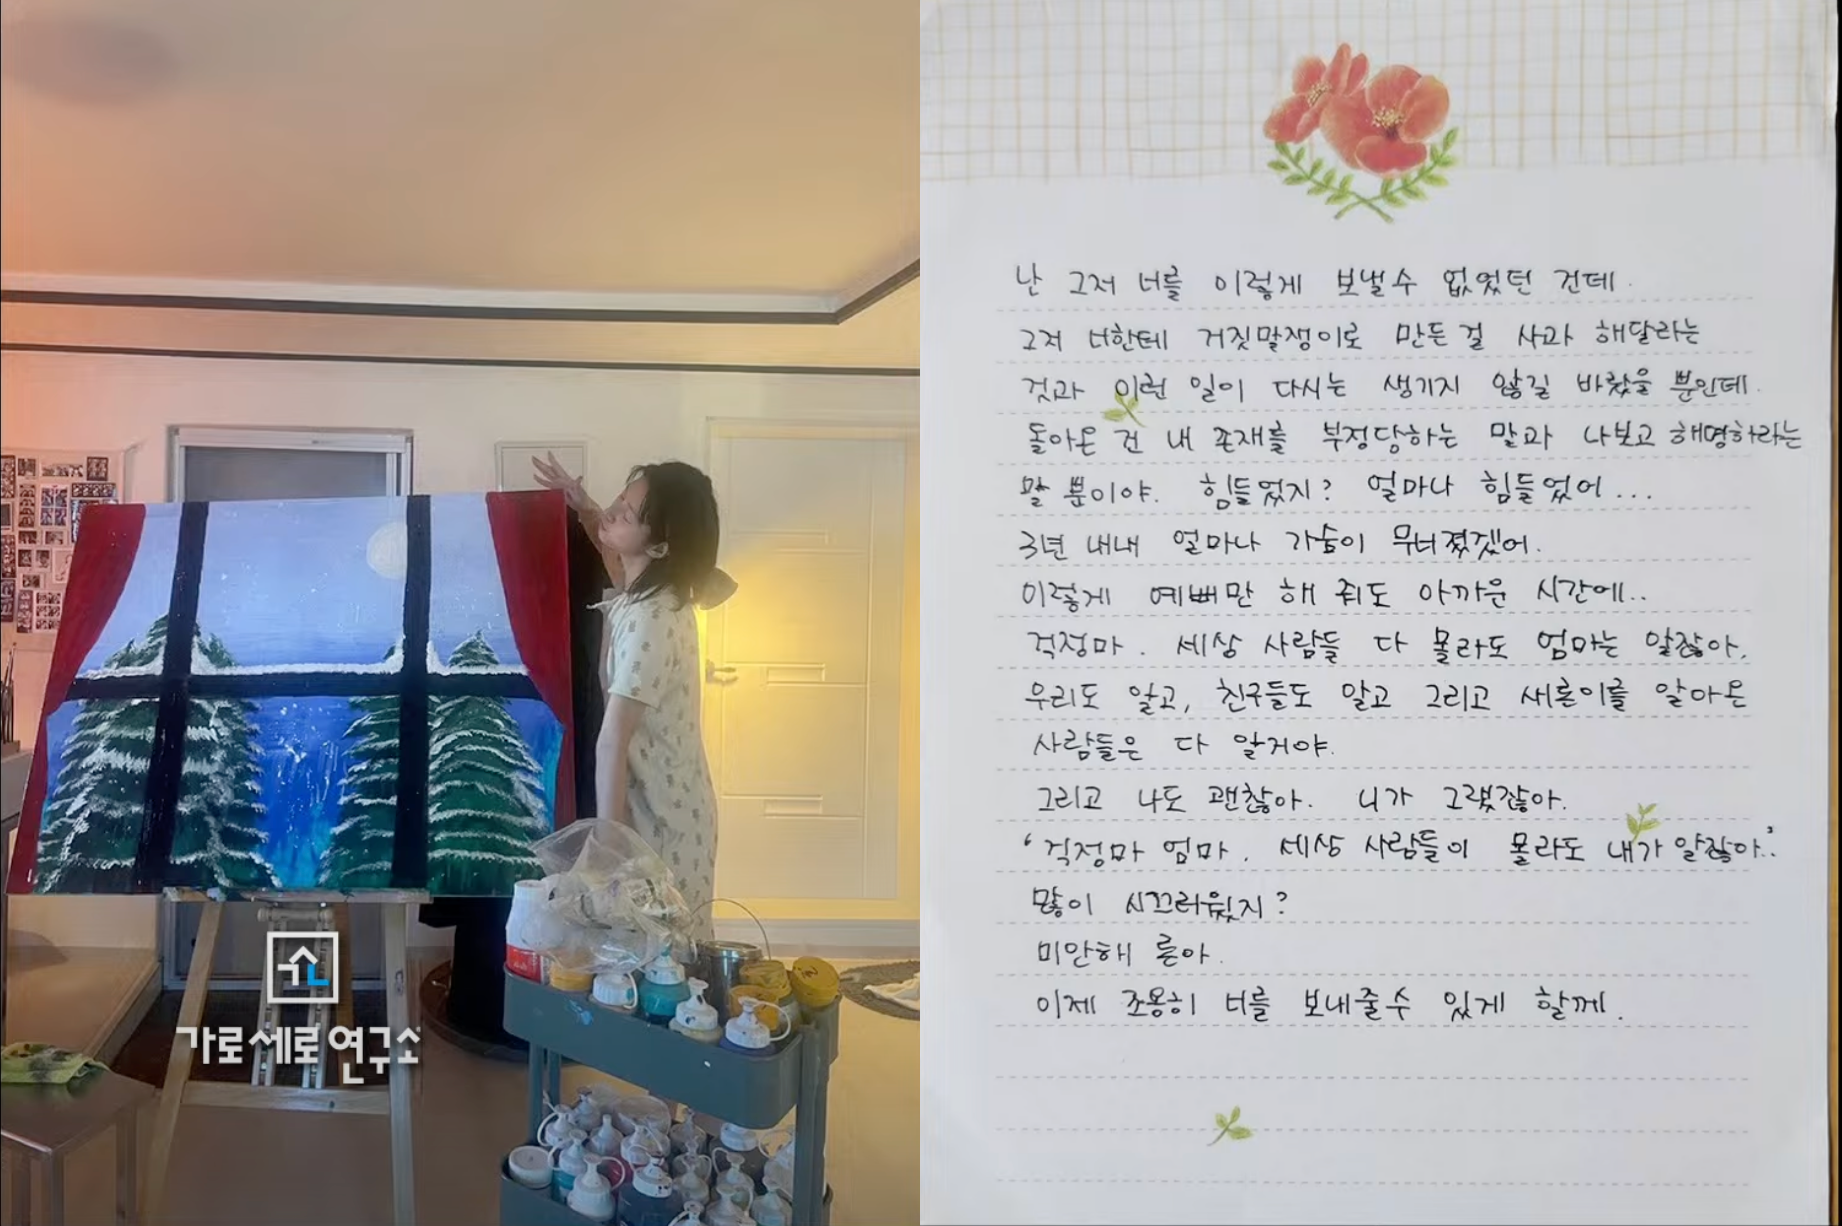 가로세로연구소
난 그저 너를 이렇게 보낼수 없었던 건데.
그저 너한테 거짓말쟁이로 만든걸 사과 해달라는
것과 이런 일이 다시는 생기지 않길 바랐을 뿐인데.
돌아온 건 내 존재를 부정당하는 말과 나보고 해명하라는
말 뿐이야. 힘들었지? 얼마나 힘들었어...
3년 내내 얼마나 가슴이 무너졌겠어.
이렇게 예뻐만 해 줘도 아까운 시간에..
걱정마. 세상 사람들 다 몰라도 엄마는 알잖아.
우리도 알고, 친구들도 알고 그리고 새론이를 알아온
사람들은 다 알거야.
그리고 나도 괜찮아. 니가 그랬잖아.
'걱정마 엄마. 세상 사람들이 몰라도 내가 알잖아..'
많이 시끄러웠지?
미안해 론아.
이제 조용히 너를 보내줄수 있게 할께.